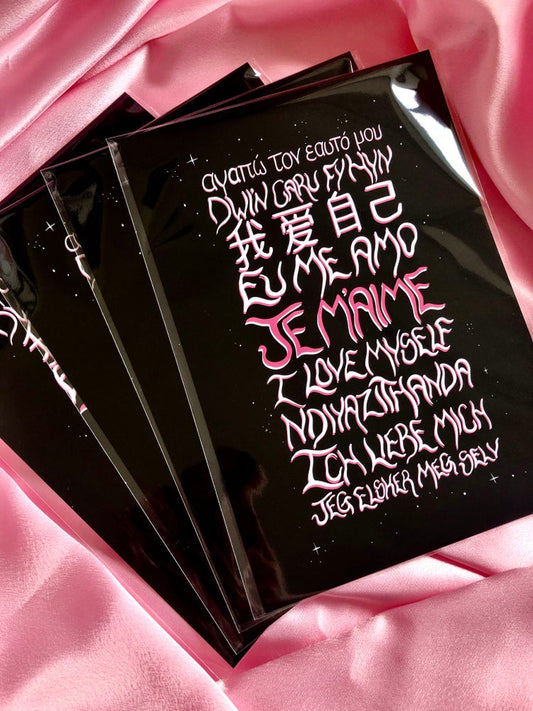 αγαπώ τον εαυτό μου
DWIN CARU FY HYN
我爱自己
EU ME AMO
JE M'AIME
I LOVE MYSELF
NDIYAZITHANDA
ICH LIEBE MICH
JEG ELSKER MEG SELV